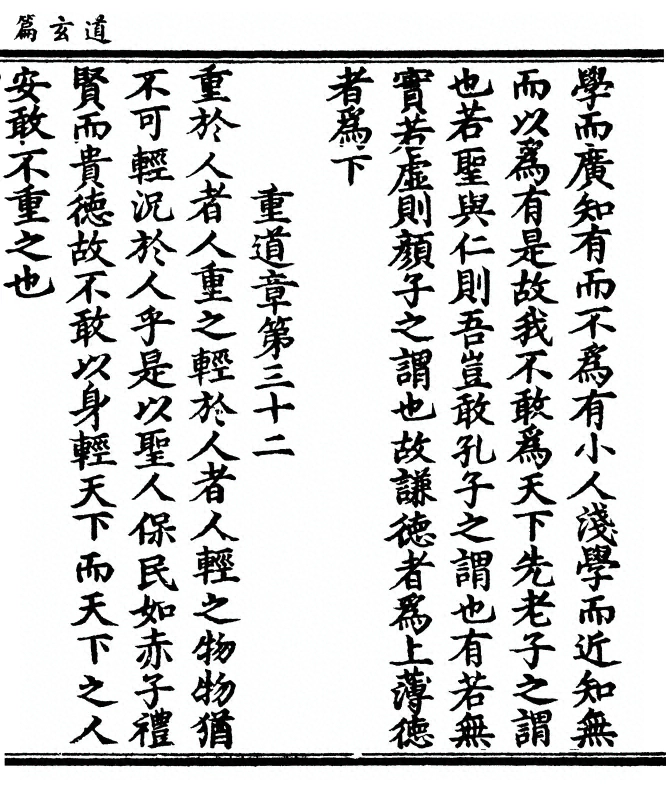 道玄篇
學而廣知有而不爲有小人淺學而近知無
而以爲有是故我不敢爲天下先老子之謂
也若聖與仁則吾豈敢孔子之謂也有若無
實若虛則顔子之謂也故謙德者爲上薄德
者爲下
重道章第三十二
重於人者人重之輕於人者人輕之物物猶
不可輕況於人乎是以聖人保民如赤子禮
賢而貴德故不敢以身輕天下而天下之人
安敢不重之也